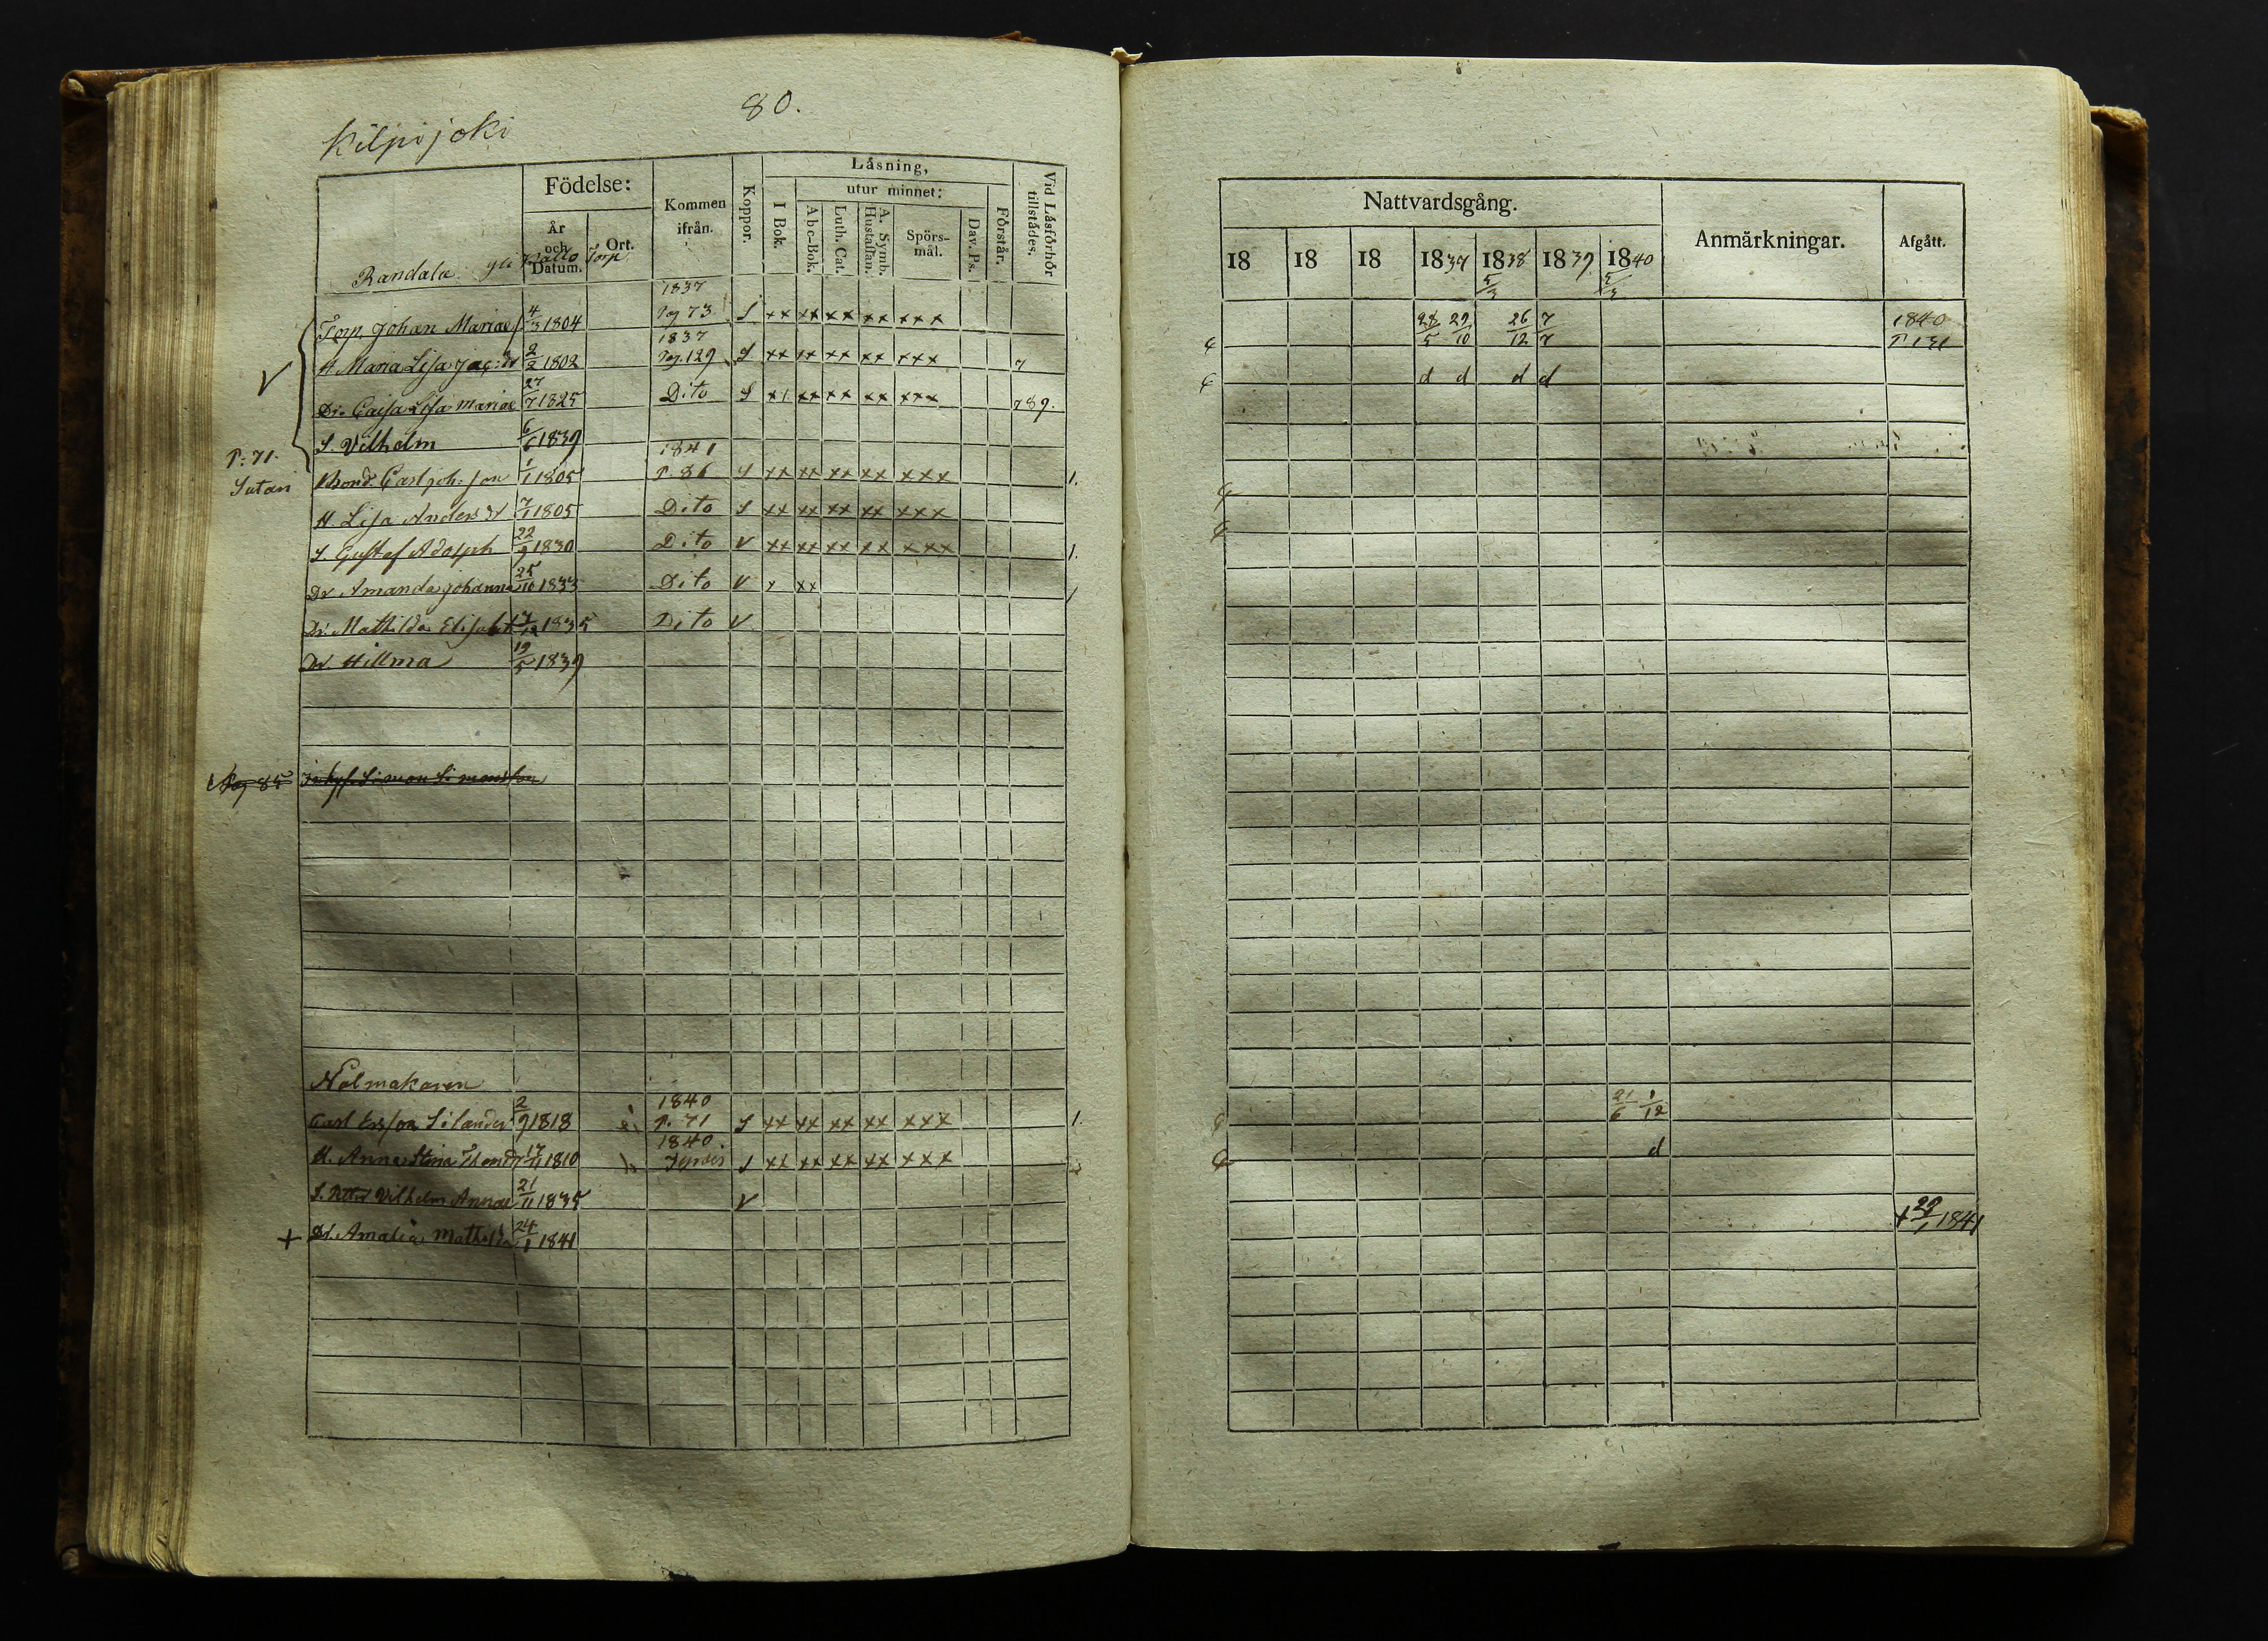 80.
Kilpijoki
Födelse:
Kommen ifrån.
Koppor.
Läsning,
utur minnet:
I Bok.
Abc-Bok.
Luth. Cat.
A. Symb. Hustaflan.
Spörsmål.
Dav. Ps.
Förstår.
Vid Läsförhör tillstädes.
År och Datum.
Ort.
Randala Torp
1837
Torp Johan Mariae 4/3 1804 Pag 73 S xx xx xx xx xxx
1837
H. Maria Lisa Jac: dr 2/2 1802 Pag. 129 S xx xx xx xx xxx 7
Dr. Caisa Lisa Mariae 27/7 1825 Dito S xx xx xx xx xxx 789.
S. Vilhelm 6/6 1839
1841
P: 71. Bond. Carl Joh: son 1/1 1805 P. 86 S xx xx xx xx xxx 1.
H. Lisa Anders dr 7/1 1805 Dito S xx xx xx xx xxx
S Gustaf Adolph 22/9 1830 Dito V xx xx xx xx xxx 1.
Dr Amanda Johanna 25/10 1833 Dito V x xx
Dr. Mathilda Elisabet 1835 Dito V
Dr. Hillma 19/5 1839
Pag 85 Simon Simonsson
Nålmakaren
1840
Carl Ersson Silander 2/9 1818 P. 71 S xx xx xx xx xxx 1.
1840.
H. Anna Stina 17/11 1810 S xx xx xx xx xxx
S. Petter Vilhelm Annae 21/11 1835 V
+ Dr. Amalia Mathilda 24/1 1841
Nattvardsgång.
Anmärkningar.
Afgått.
18 18 18 1837 1838 1839 1840
5/3 5/3
28/5 29/10 26/12 7/7 1840
d d d d
21/6 1/12
d
+ 29/1 1841